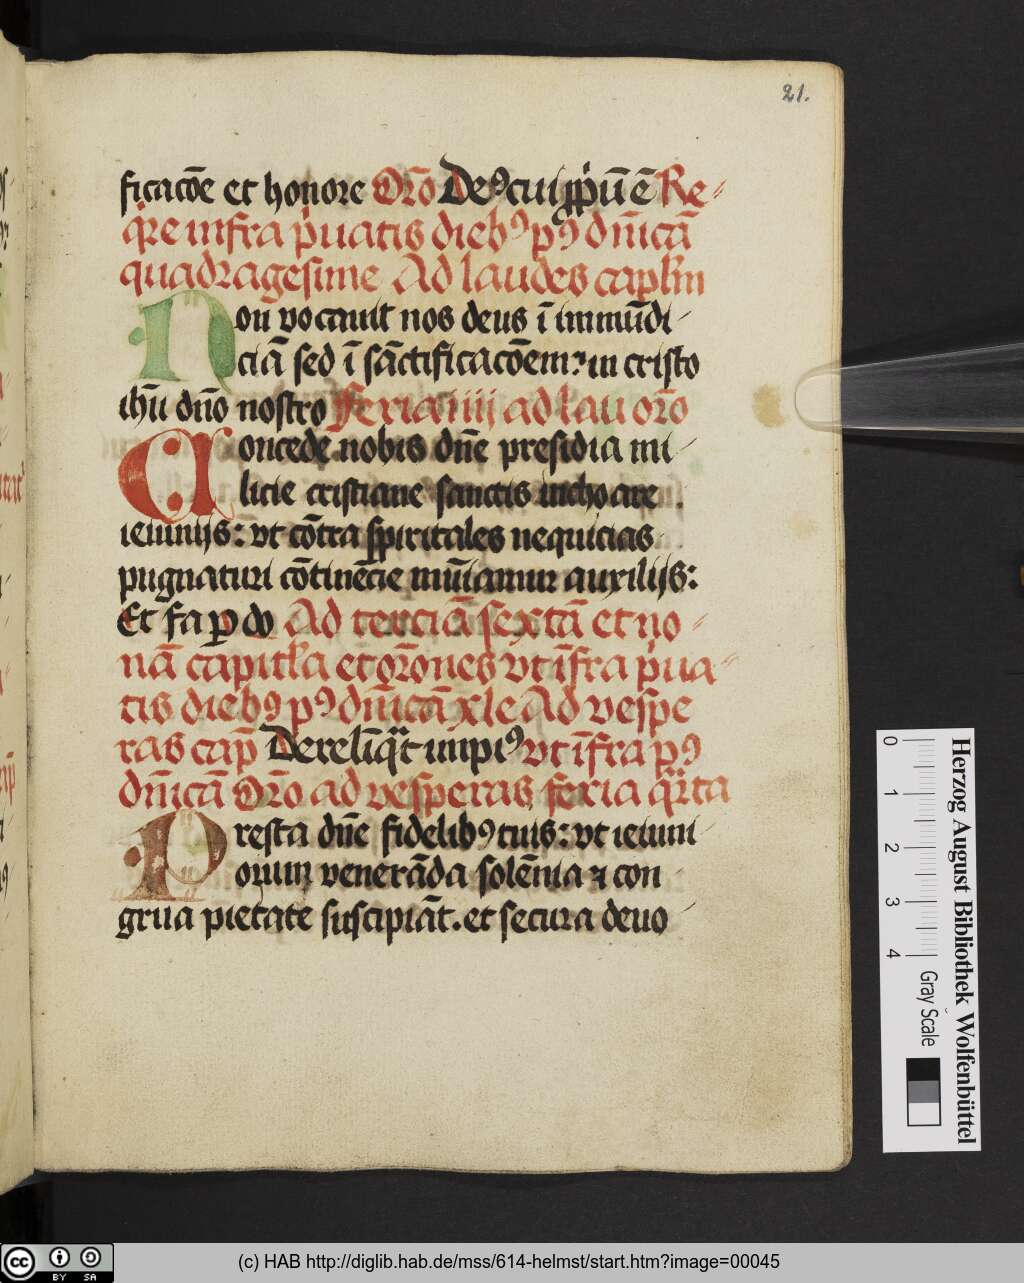 21.
ficacōe et honore Orō Deꝰ cui ꝓpͥū ē Re-
qͥre infra pͥuatis diebꝰ pꝰ dn̄icā
quadragesime Ad laudes caplm̄
Non vocauit nos deus ī inmūdi-
ciā sed ī sāctificacōem: in cristo
ihū dn̄o nostro Feria iiij ad lau orō
Concede nobis dn̄e presidia mi-
licie cristiane sanctis inchoare .
ieiunijs: vt cōtra spiritales nequicias
pugnaturi cōtinēcie mūiamur auxilijs:
Et fa ꝑ do Ad terciā sextā et no-
nā capitl'a et orōnes vt īfra pͥua-
tis diebꝰ pꝰ dn̄icā xle Ad vespe
ras cap̄ Derelīqᷓt impiꝰ vt īfra pꝰ
dn̄icā Orō ad vesperas feria qᷓrta
Presta dn̄e fidelibꝰ tuis: vt ieiuni-
orum venerāda solēnia ⁊ con
grua pietate suscipiāt. et secura deuo-
Herzog August Bibliothek Wolfenbüttel
0 1 2 3 4 Gray Scale
cc BY SA
(c) HAB http://diglib.hab.de/mss/614-helmst/start.htm?image=00045